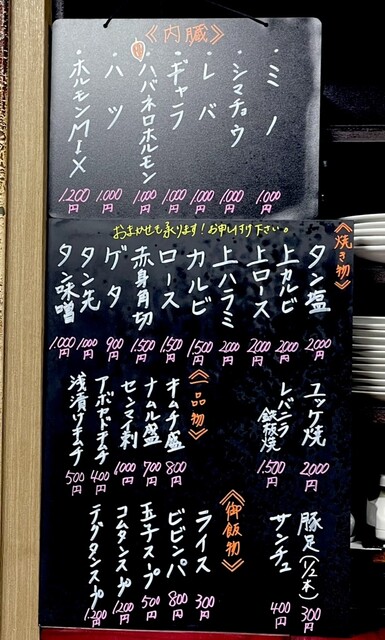 《内臓》
・ミノ 1,000円
・シマチョウ 1,000円
・レバ 1,000円
・ギャラ 1,000円
・ハバネロホルモン 1,000円
・ハツ 1,000円
・ホルモンMIX 1,200円
おまかせも承ります!お申し付け下さい。
《焼き物》
タン塩 2,000円
上カルビ 2,000円
上ロース 2,000円
上ハラミ 2,000円
カルビ 1,500円
ロース 1,500円
赤身角切 1,500円
ゲタ 900円
タン先 1,000円
タン味噌 1,000円
ユッケ焼 2,000円
レバニラ鉄板焼 1,500円
豚足(1/2本) 300円
サンチュ 400円
《一品物》
キムチ盛 800円
ナムル盛 700円
センマイ刺 1,000円
アボカドキムチ 400円
浅漬けキムチ 500円
《御飯物》
ライス 300円
ビビンバ 800円
玉子スープ 500円
コムタンスープ 1,200円
テグタンスープ 1,200円